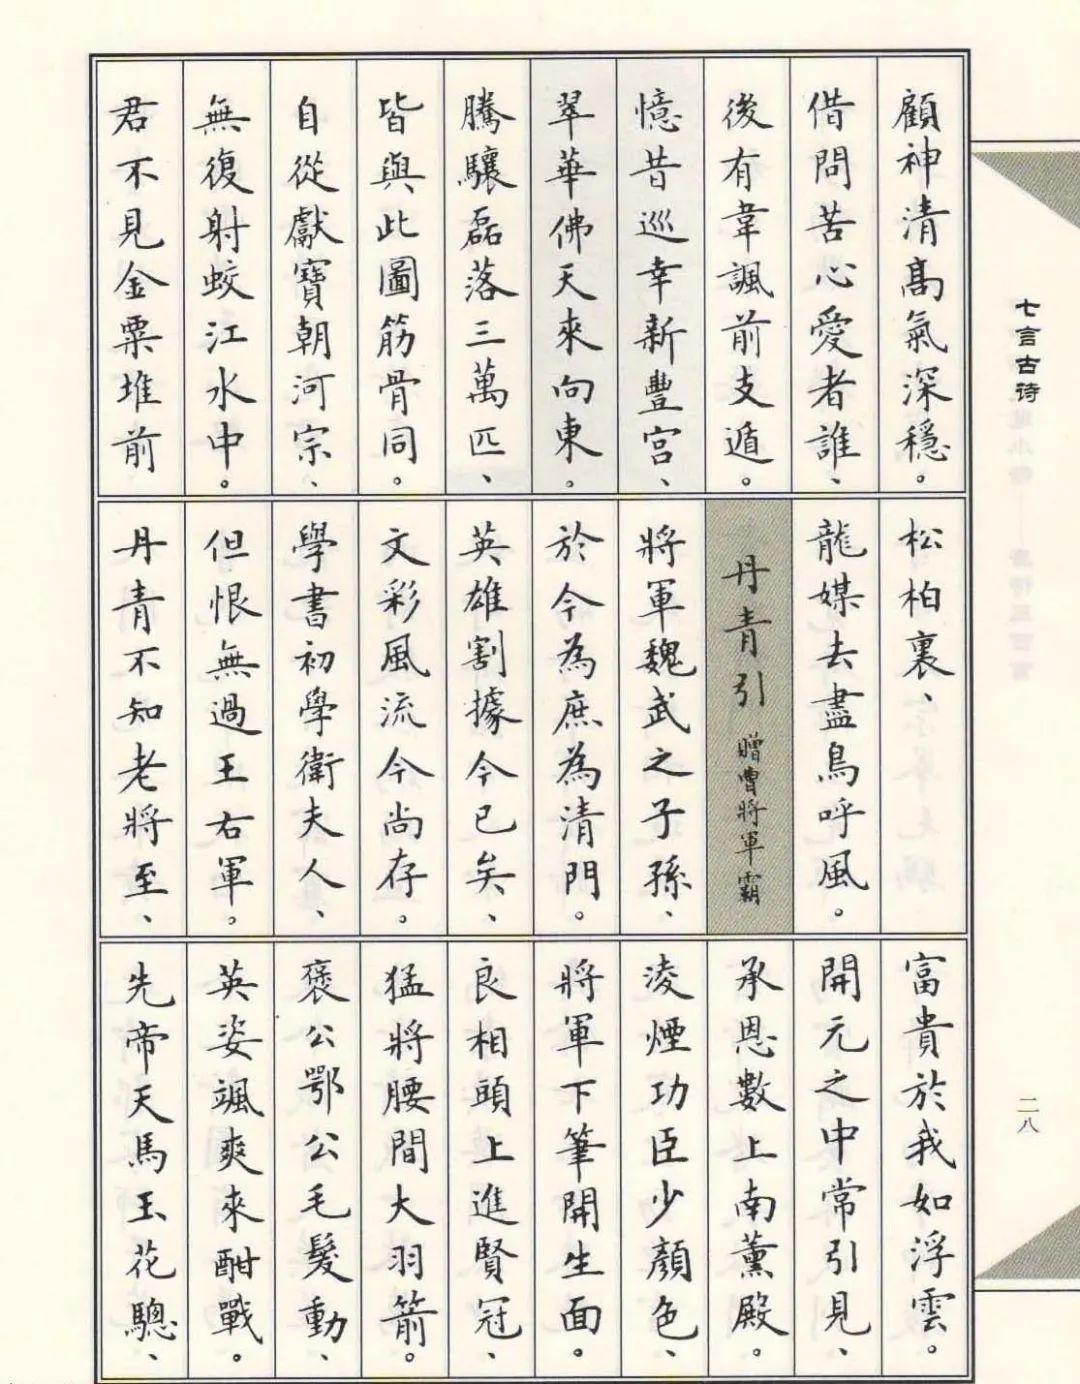 顧神清高氣深穩。
借問苦心愛者誰、
後有韋諷前支遁。
憶昔巡幸新豐宮、
翠華佛天來向東。
騰驤磊落三萬匹、
皆與此圖筋骨同。
自從獻寶朝河宗、
無復射蛟江水中。
君不見金粟堆前
松柏裏、
龍媒去盡鳥呼風。
丹青引 贈曹將軍霸
將軍魏武之子孫、
於今為庶為清門。
英雄割據今已矣、
文彩風流今尚存。
學書初學衛夫人、
但恨無過王右軍。
丹青不知老將至、
富貴於我如浮雲。
開元之中常引見、
承恩數上南薰殿。
淩煙功臣少顏色、
將軍下筆開生面。
良相頭上進賢冠、
猛將腰間大羽箭。
褒公鄂公毛髮動、
英姿颯爽來酣戰。
先帝天馬玉花驄、
七言古诗
二八